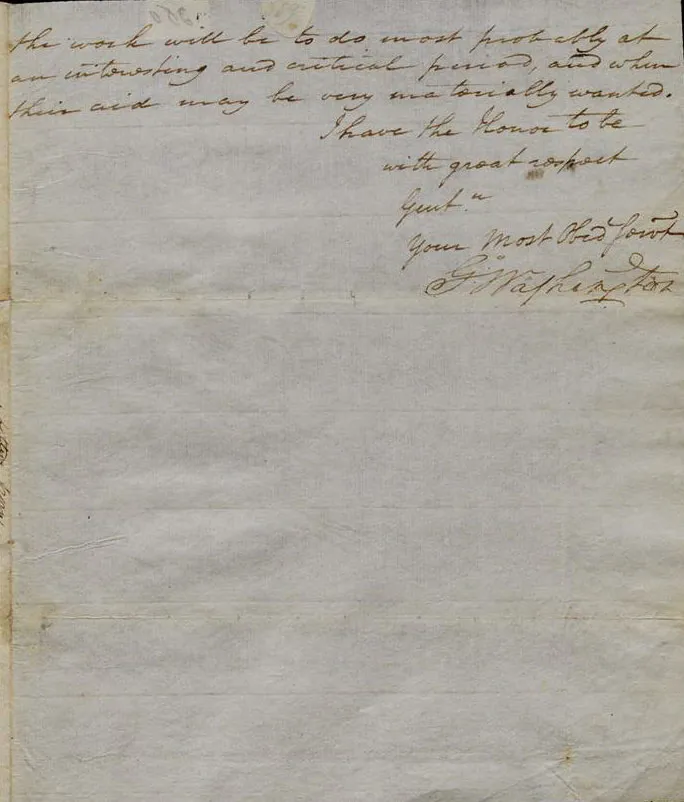 the work will be to do most probably at
an interesting and critical period, and when
their aid may be very materially wanted.
I have the Honor to be
with great respect
Gent.n
Your Most Obed Servt
Go Washington